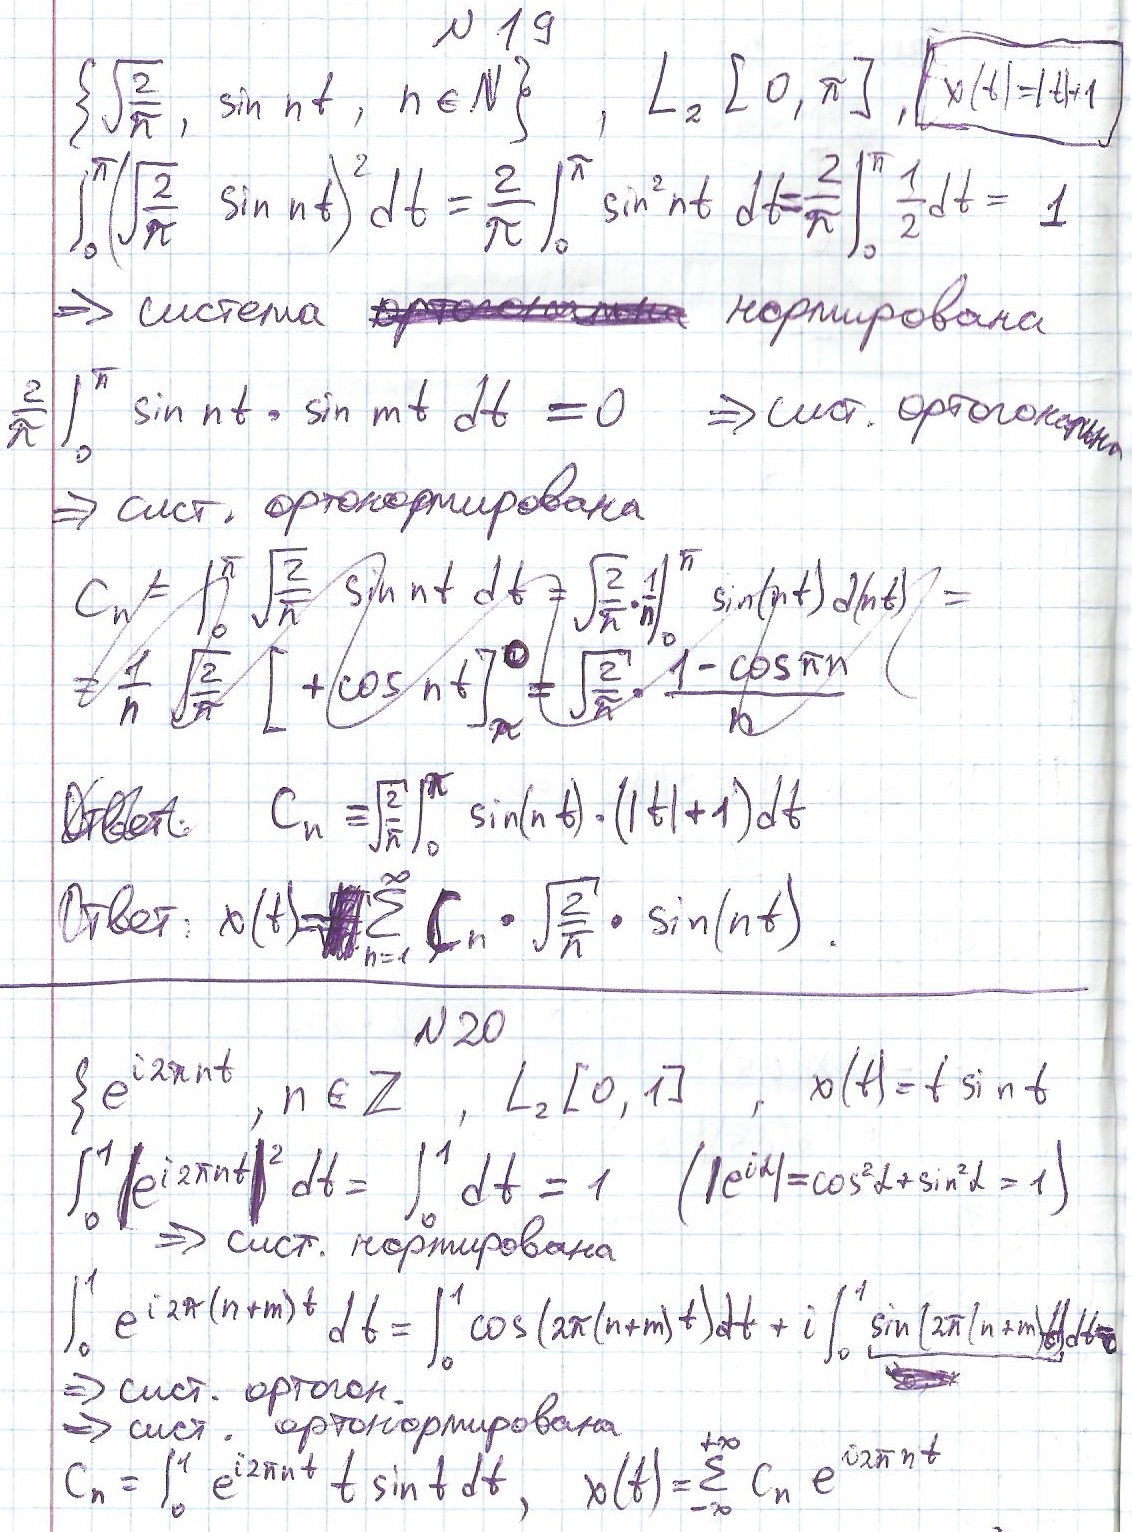 N 19
{√(2/π), sin nt, n ∈ N}, L₂ [0, π], x(t)=|t|+1
∫₀^π (√(2/π) sin nt)² dt = 2/π ∫₀^π sin² nt dt = 2/π ∫₀^π 1/2 dt = 1
⇒ система нормирована
2/π ∫₀^π sin nt · sin mt dt = 0 ⇒ сист. ортогональна
⇒ сист. ортонормирована
Cₙ = ∫₀^π √(2/π) sin nt dt = √(2/π) · 1/n ∫₀^π sin(nt) d(nt) =
= 1/n √(2/π) [+cos nt]_π^0 = √(2/π) · (1 - cos πn)/n
Ответ: Cₙ = √(2/π) ∫₀^π sin(nt)·(|t|+1)dt
Ответ: x(t) = ∑_{n=1}^∞ Cₙ · √(2/π) · sin(nt).
N 20
{e^{i2πnt}, n ∈ Z, L₂[0,1], x(t)= t sin t
∫₀¹ |e^{i2πnt}|² dt = ∫₀¹ dt = 1 (|e^{iα}|=cos²α+sin²α = 1)
⇒ сист. нормирована
∫₀¹ e^{i2π(n+m)t} dt = ∫₀¹ cos(2π(n+m)t)dt + i∫₀¹ sin(2π(n+m)t)dt=0
⇒ сист. ортогон.
⇒ сист. ортонормирована
Cₙ = ∫₀¹ e^{i2πnt} t sin t dt, x(t)=∑_{-∞}^{+∞} Cₙ e^{i2πnt}